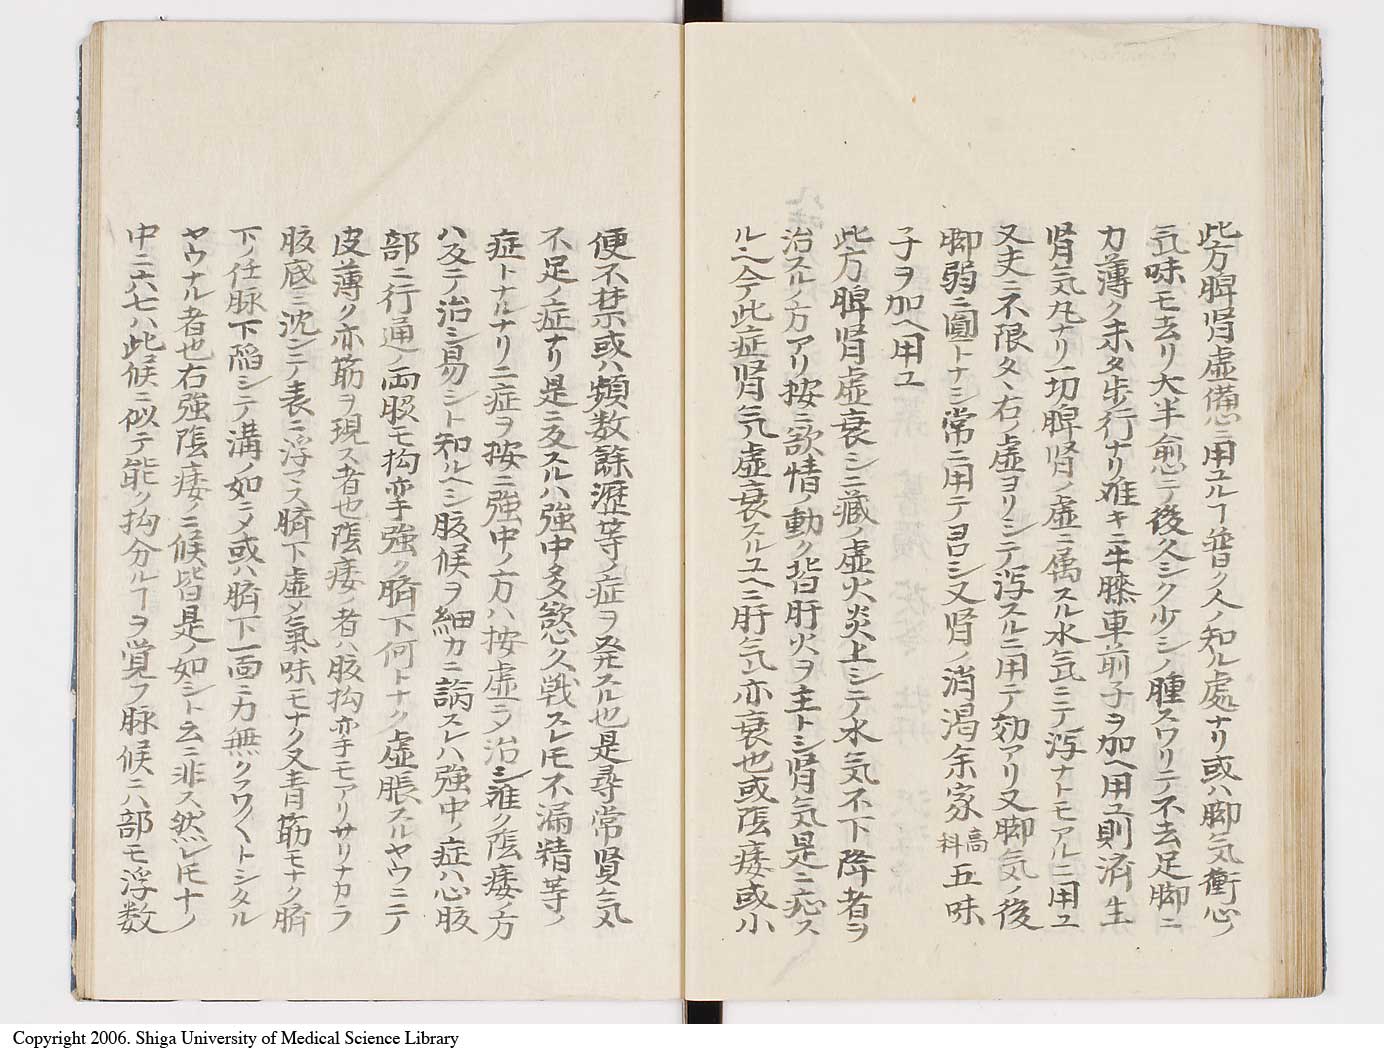 此方脾腎虚備ニ用ユルヿ普ク人ノ知ル處ナリ或ハ脚気衝心ノ
気味モ去リ大半愈ニノ後久シク少シノ腫スワリテ不去足脚ニ
力薄ク未タ歩行ナリ難キニ牛膝車前子ヲ加ヘ用ユ則済生
腎気丸ナリ一切脾腎ノ虚ニ属スル水気ニテ瀉ナトモアルニ用ユ
又丈ニ不限タヽ右ノ虚ヨリシテ瀉スルニ用テ効アリ又脚気ノ後
脚弱ニ圓トナシ常ニ用テヨロシ又腎ノ消渇余家高科五味
子ヲ加ヘ用ユ
此方脾腎虚衰シ二藏ノ虚火炎上シテ水気不下降者ヲ
治スルノ方アリ按ニ欲情ノ動ク皆肝火ヲ主トシ腎気是ニ応ス
ルヘ今此症腎気虚衰スルユヘニ肝気亦衰也或陰痿或小
便不禁或ハ頻数餘瀝等ノ症ヲ発スル也是尋常腎気
不足ノ症ナリ是ニ反スルハ強中多慾久戦スレ𪜈不漏精等ノ
症トナルナリ二症ヲ按ニ強中ノ方ハ按虚シメ治シ難ク陰痿ノ方
ハ反テ治シ易シト知ルヘシ腹候ヲ細カニ論スレハ強中ノ症ハ心腹
部ニ行通ノ両股モ拘挛強ク臍下何トナク虚脹スルヤウニテ
皮薄ク亦筋ヲ現ス者也陰痿ノ者ハ腹拘挛モアリサリナカラ
腹底ニ沈ンテ表ニ浮マス臍下虚メ氣味モナク又青筋モナク臍
下ノ任脉下陥シテ溝ノ如ニメ或ハ臍下一面ニ力無クフワ〱トシタル
ヤウナル者也右強陰痿ノ二候皆是ノ如シト云ニ非ス然レ𪜈十ノ
中ニ六七ハ此候ニ似テ能ク拘分ルヿヲ覚フ脉候ニハ部モ浮数
Copyright 2006. Shiga University of Medical Science Library